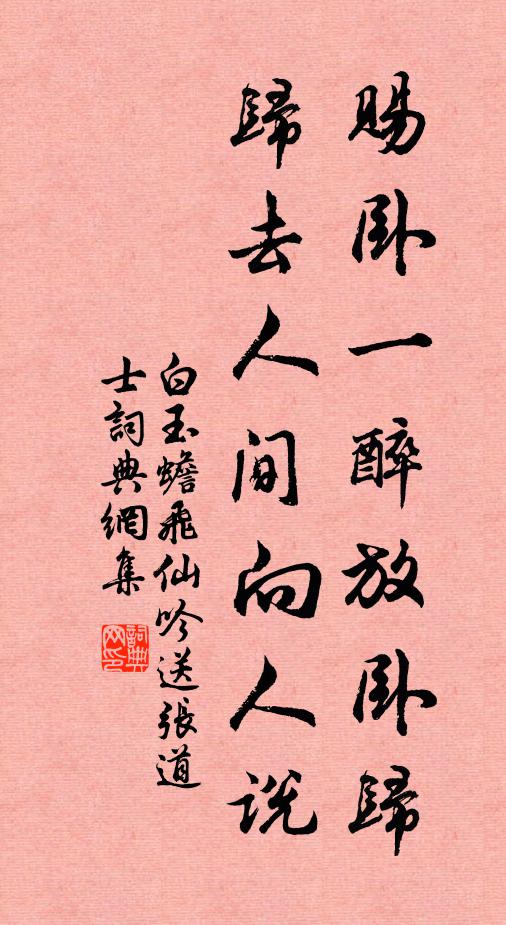 賜卧一醉放卧歸
歸去人間向人說
白玉蟾飛仙吟送張道
士詞典網集
詞典网印